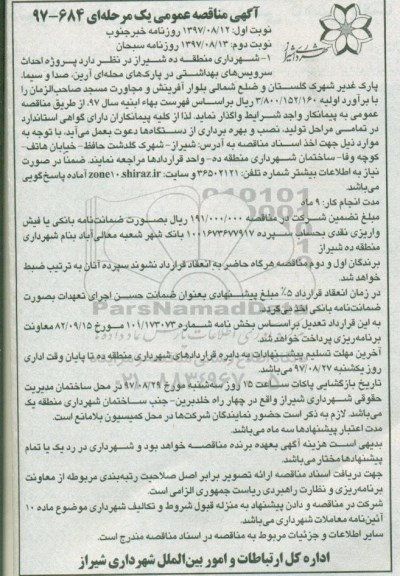 آگهی مناقصه عمومی یک مرحله‌ای ۶۸۴-۹۷
نوبت اول: ۱۳۹۷/۰۸/۱۲ روزنامه خبرجنوب
نوبت دوم: ۱۳۹۷/۰۸/۱۳ روزنامه سبحان
۱-شهرداری منطقه ده شیراز در نظر دارد پروژه احداث
سرویس‌های بهداشتی در پارک‌های محله‌ای آرین، صدا و سیما،
پارک غدیر شهرک گلستان و ضلع شمالی بلوار آفرینش و مجاورت مسجد صاحب‌الزمان را
با برآورد اولیه ۳/۸۰۰/۱۵۲/۱۶۰ ریال براساس فهرست بهاء ابنیه سال ۹۷، از طریق مناقصه
عمومی به پیمانکار واجد شرایط واگذار نماید. لذا از کلیه پیمانکاران دارای گواهی استاندارد
در تمامی مراحل تولید، نصب و بهره برداری از دستگاه‌ها دعوت بعمل می‌آید. با توجه به
موارد ذیل جهت اخذ اسناد مناقصه به آدرس: شیراز- شهرک گلدشت حافظ- خیابان هاتف-
کوچه وفا- ساختمان شهرداری منطقه ده- واحد قراردادها مراجعه نمایند. ضمناً در صورت
نیاز به اطلاعات بیشتر شماره تلفن: ۳۶۵۰۲۱۲۱ و سایت: zone10.shiraz.ir آماده پاسخ‌گویی
می‌باشد.
مدت انجام کار: ۹ ماه
مبلغ تضمین شرکت در مناقصه ۱۹۱/۰۰۰/۰۰۰ ریال بصورت ضمانت‌نامه بانکی یا فیش
واریزی نقدی بحساب سپرده ۱۰۰۱۶۷۳۶۷۷۹۱۷ بانک شهر شعبه معالی‌آباد بنام شهرداری
منطقه ده شیراز
برندگان اول و دوم مناقصه هرگاه حاضر به انعقاد قرارداد نشوند سپرده آنان به ترتیب ضبط
خواهد شد.
در زمان انعقاد قرارداد ۵٪ مبلغ پیشنهادی بعنوان ضمانت حسن اجرای تعهدات بصورت
ضمانت‌نامه بانکی اخذ می‌گردد.
به این قرارداد تعدیل براساس بخش نامه شماره ۱۰۱/۱۷۳۰۷۳ مورخ ۸۲/۰۹/۱۵ معاونت
برنامه‌ریزی پرداخت خواهد شد.
آخرین مهلت تسلیم پیشنهادات به دایره قراردادهای شهرداری منطقه ده تا پایان وقت اداری
روز یکشنبه ۹۷/۰۸/۲۷ می‌باشد.
تاریخ بازگشایی پاکات ساعت ۱۵ روز سه‌شنبه مورخ ۹۷/۰۸/۲۹ در محل ساختمان مدیریت
حقوقی شهرداری شیراز واقع در چهار راه خلدبرین- جنب ساختمان شهرداری منطقه یک
می‌باشد. لازم به ذکر است حضور نمایندگان شرکت‌ها در محل کمیسیون بلامانع است.
مدت اعتبار پیشنهادها سه ماه می‌باشد.
بدیهی است هزینه آگهی بعهده برنده مناقصه خواهد بود و شهرداری در رد یک یا تمام
پیشنهادها مختار می‌باشد.
جهت دریافت اسناد مناقصه ارائه تصویر برابر اصل صلاحیت رتبه‌بندی مربوطه از معاونت
برنامه‌ریزی و نظارت راهبردی ریاست جمهوری الزامی است.
شرکت در مناقصه و دادن پیشنهاد به منزله قبول شروط و تکالیف شهرداری موضوع ماده ۱۰
آئین‌نامه معاملات شهرداری می‌باشد.
سایر اطلاعات و جزئیات مربوط به مناقصه در اسناد مناقصه مندرج است.
اداره کل ارتباطات و امور بین‌الملل شهرداری شیراز
ParsNamadData